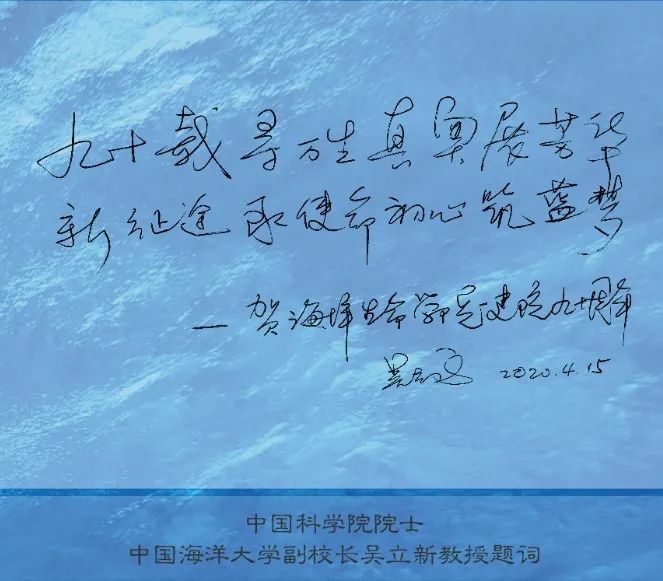 九十载寻万生真奥展芳华
新征途承使命初心筑蓝梦
—贺海洋生命学院建院九十周年
吴立新 2020.4.15
中国科学院院士
中国海洋大学副校长吴立新教授题词